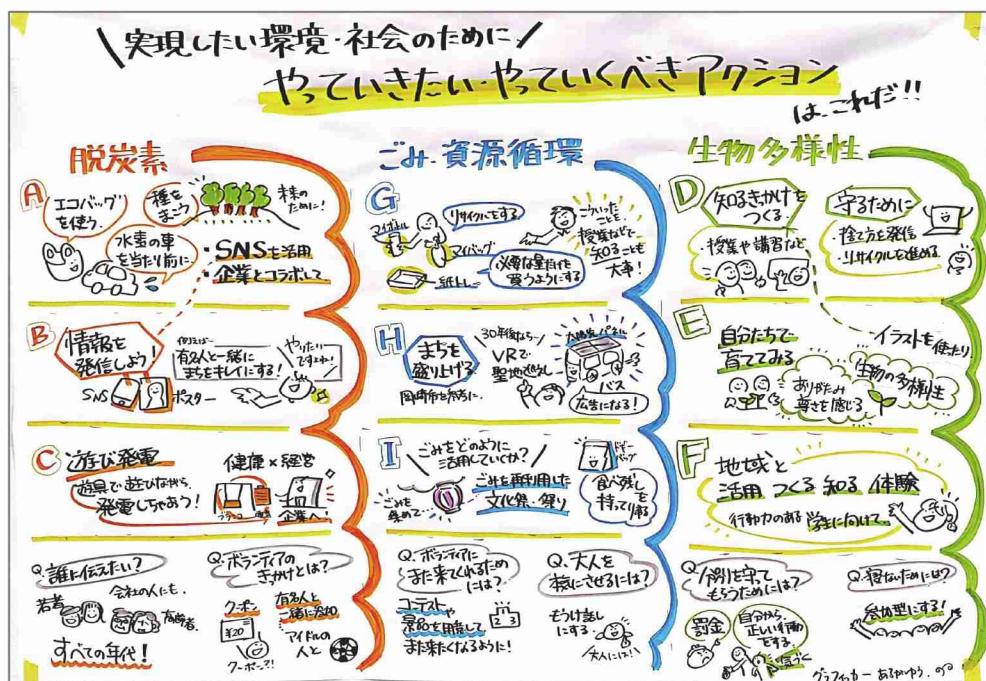 実現したい環境・社会のために
やっていきたい・やっていくべきアクション
は、これだ!!
脱炭素
A
エコバッグ
を使う。
種を
まこう
未来の
ために!
水素の車
を当たり前に
・SNSを活用
・企業とコラボして
B
情報を
発信しよう!
SNS
ポスター
例えば…
有名人と一緒に
まちをキレイにする!
やりたい
ですよね!
C 遊び発電
遊具で遊びながら、
発電しちゃおう!
健康×経営
ブランコ
企業へ!
Q.誰に伝えたい?
若者
会社の人にも。
高齢者。
すべての年代!
Q.ボランティアの
きっかけとは?
クーポン
¥20
クーポン?!
有名人と
一緒に参加
アイドルの
人と
ごみ・資源循環
G
マイボトル
リサイクルをする
マイバッグ
紙トレー
必要な量だけを
買うようにする
こういった
ことも、
授業などで
知ることも
大事!
H
まちを
盛り上げる
岡崎市を参考に。
30年後なら…
VRで
聖地巡礼
太陽光パネル
バス
広告になる!
I
ごみをどのように
活用していくか?
ごみを
集めて…
ごみを再利用した
文化祭・祭り
ドギー
バッグ
食べ残しを
持って帰る
Q.ボランティアに
また来てくれるため
には?
コンテストや
景品を用意して
また来たくなるように!
1 2 3
Q.大人を
本気にさせるには?
もうけ話し
にする
大人には!
生物多様性
D
知るきかけを
つくる
・授業や講習など
守るために
・捨て方を発信
・リサイクルを進める
E
自分たちで
育ててみる
イラストを使ったり
生物の多様性
ありがたみ
尊さを感じる
F
地域と
活用 つくる 知る 体験
行動力のある学生に向けて。
Q.ルールを守って
もらうためには?
罰金
自分から、
正しい行動
をする。
気づく
参加型にする!
グラフィッカー あるがゆう.